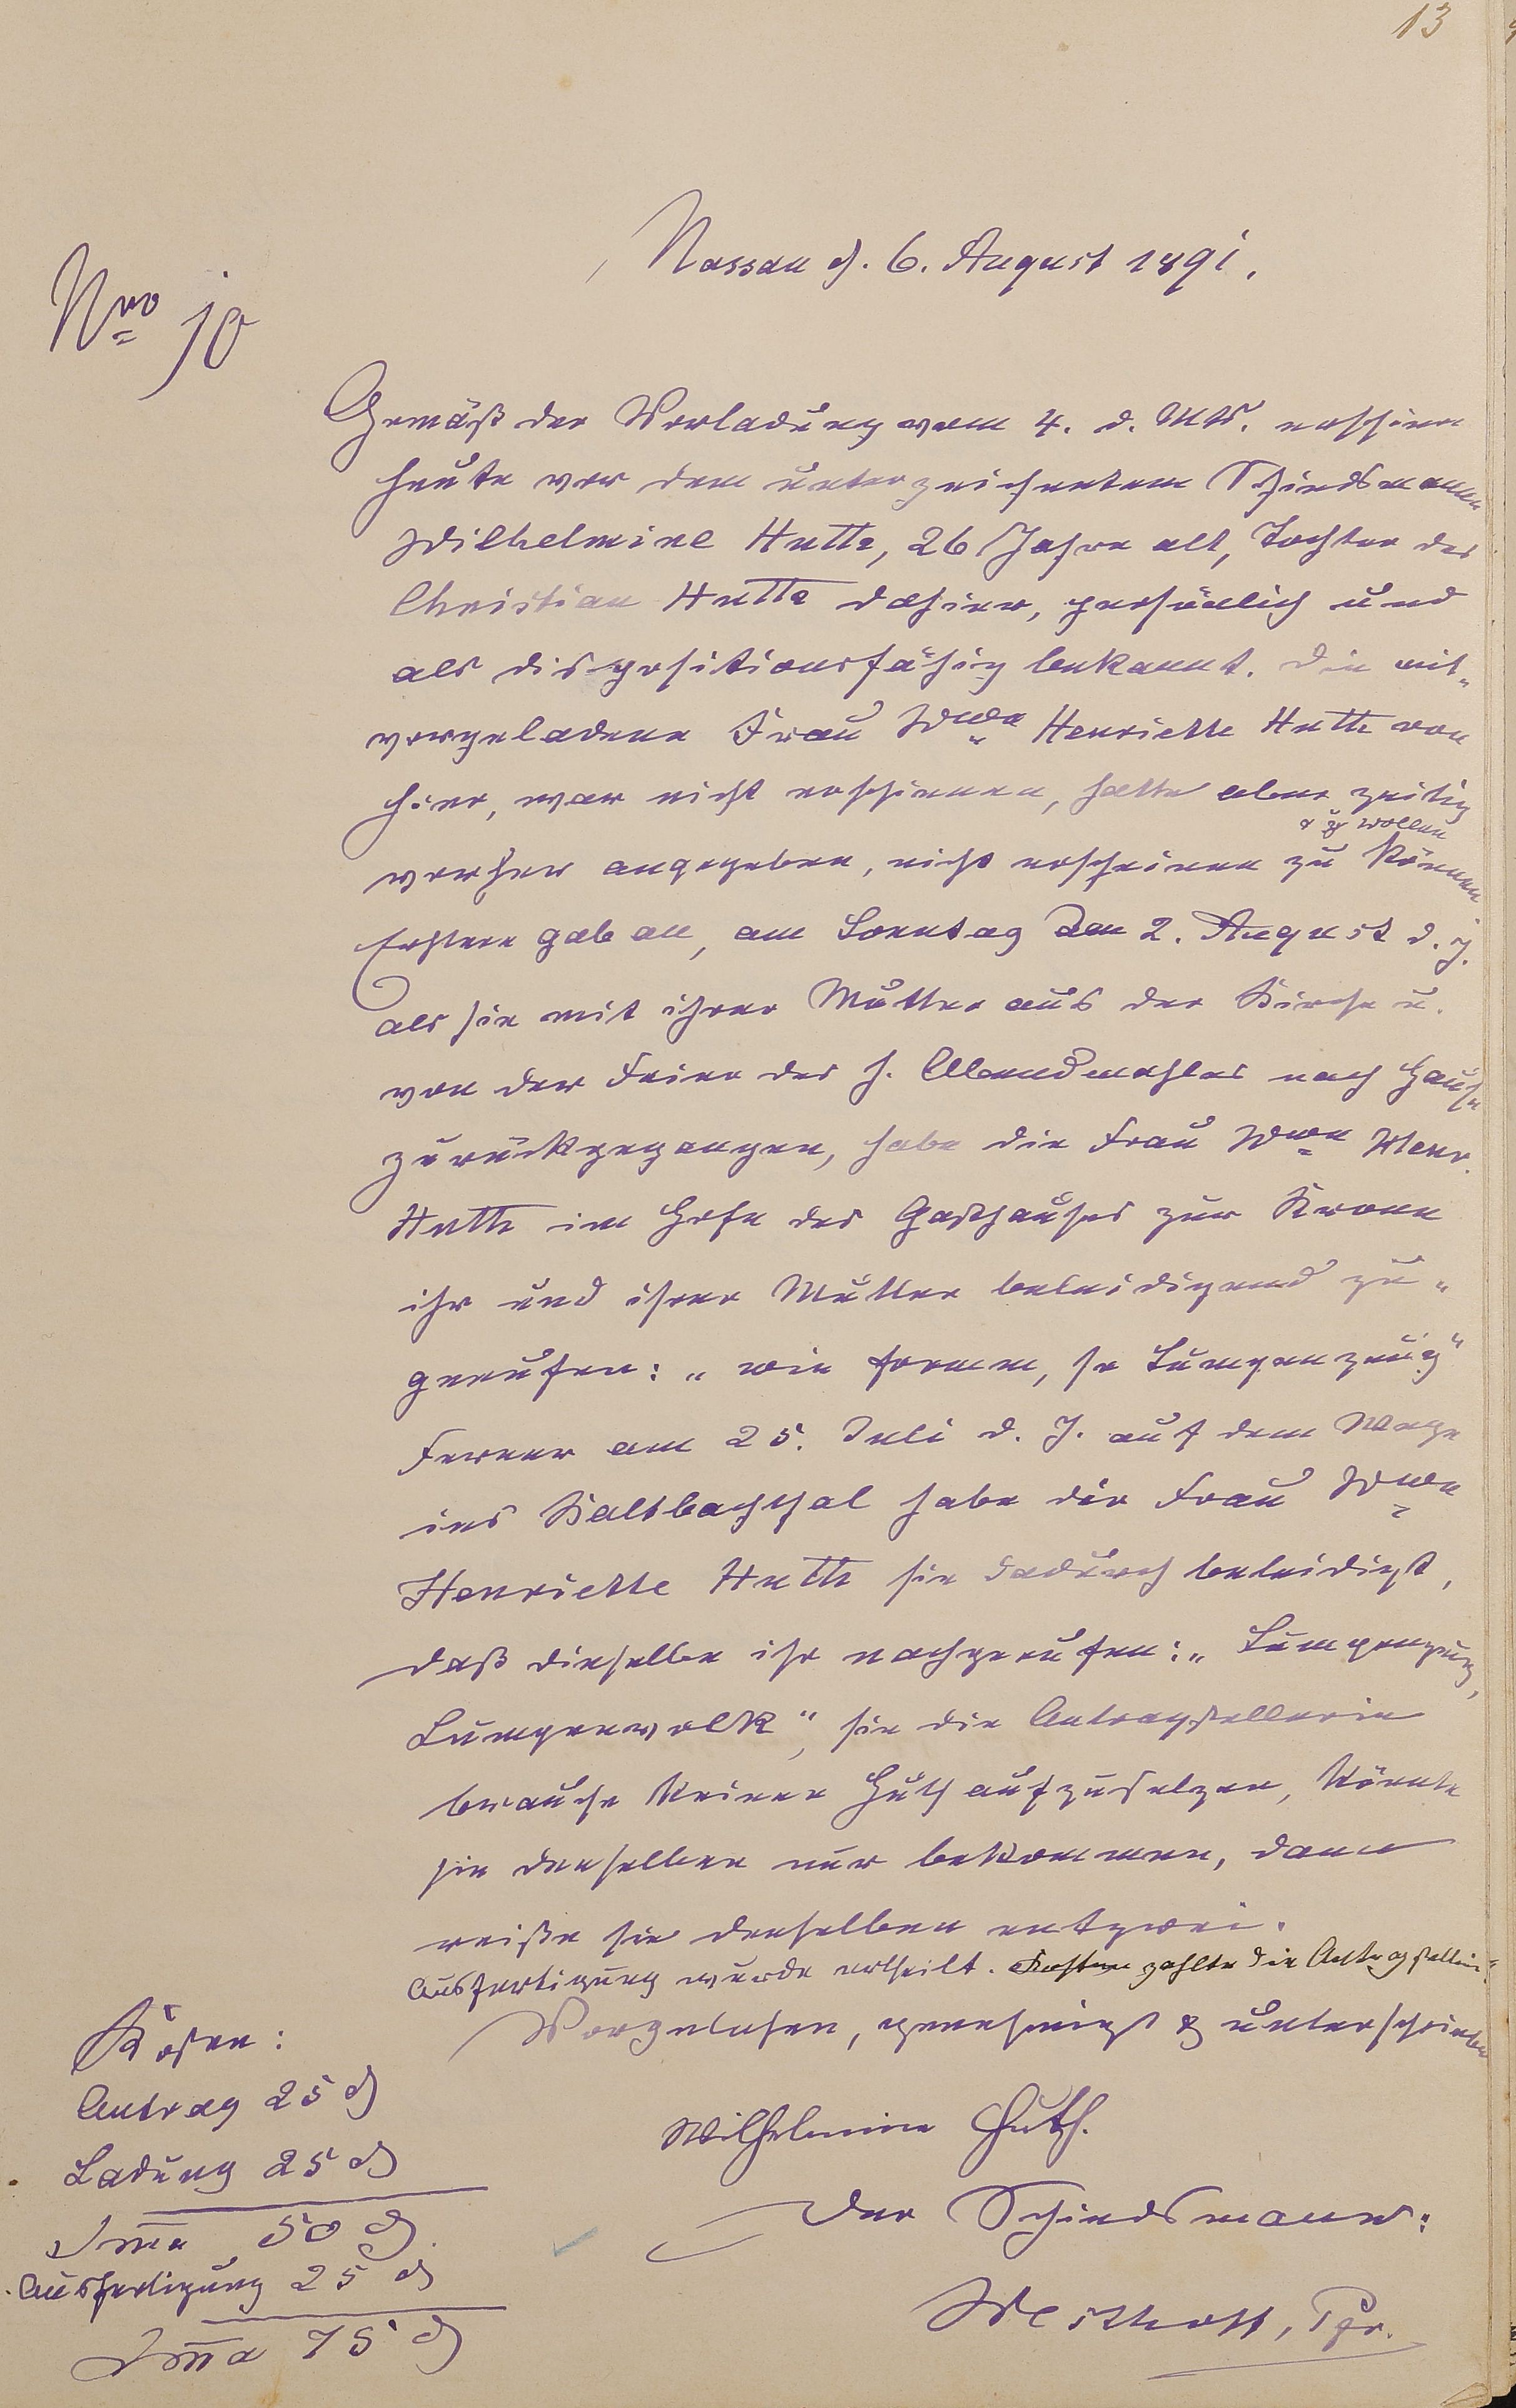 13
Nassau d. 6. August 1891.
Nro 10
Gemäß der Vorladung vom 4. d. Mts. erschien
heute vor dem unterzeichnetem Schiedsmann
Wilhelmine Huth, 26 Jahre alt, Tochter des
Christian Huth dahier, persönlich und
als dispositionsfähig bekannt. Die mit-
vorgeladene Frau Wwe Henriette Huth von
hier, war nicht erschienen, hatte aber zeitig
& zu wollen
vorher angegeben, nicht erscheinen zu können
Erstere gab an, am Sonntag den 2. August d. J.
als sie mit ihrer Mutter aus der Kirche u.
von der Feier des h. Abendmahles nach Hause
zurückgegangen, habe die Frau Wwe Henr.
Huth im Hofe des Gasthauses zur Krone
ihr und ihrer Mutter beleidigend zu-
gerufen: „wie fromm, so Lumpenzeug"
Ferner am 25. Juli d. J. auf dem Wege
ins Kaltbachthal habe die Frau Wwe
Henriette Huth sie dadurch beleidigt,
daß dieselbe ihr nachgerufen: „Lumpenzeug,
Lumpenvolk", sie die Antragstellerin
brauche keinen Huth aufzusetzen, könnte
sie denselben nur bekommen, dann
reiße sie denselben entzwei.
Ausfertigung wurde ertheilt. Kosten zahlte die Antragstellerin.
Vorgelesen, genehmigt & unterschrieben
Wilhelmine Huth.
Der Schiedsmann:
Westhoff, Pfr.
Kosten:
Antrag 25 ₰
Ladung 25 ₰
Sma 50 ₰
Ausfertigung 25 ₰
Sma 75 ₰